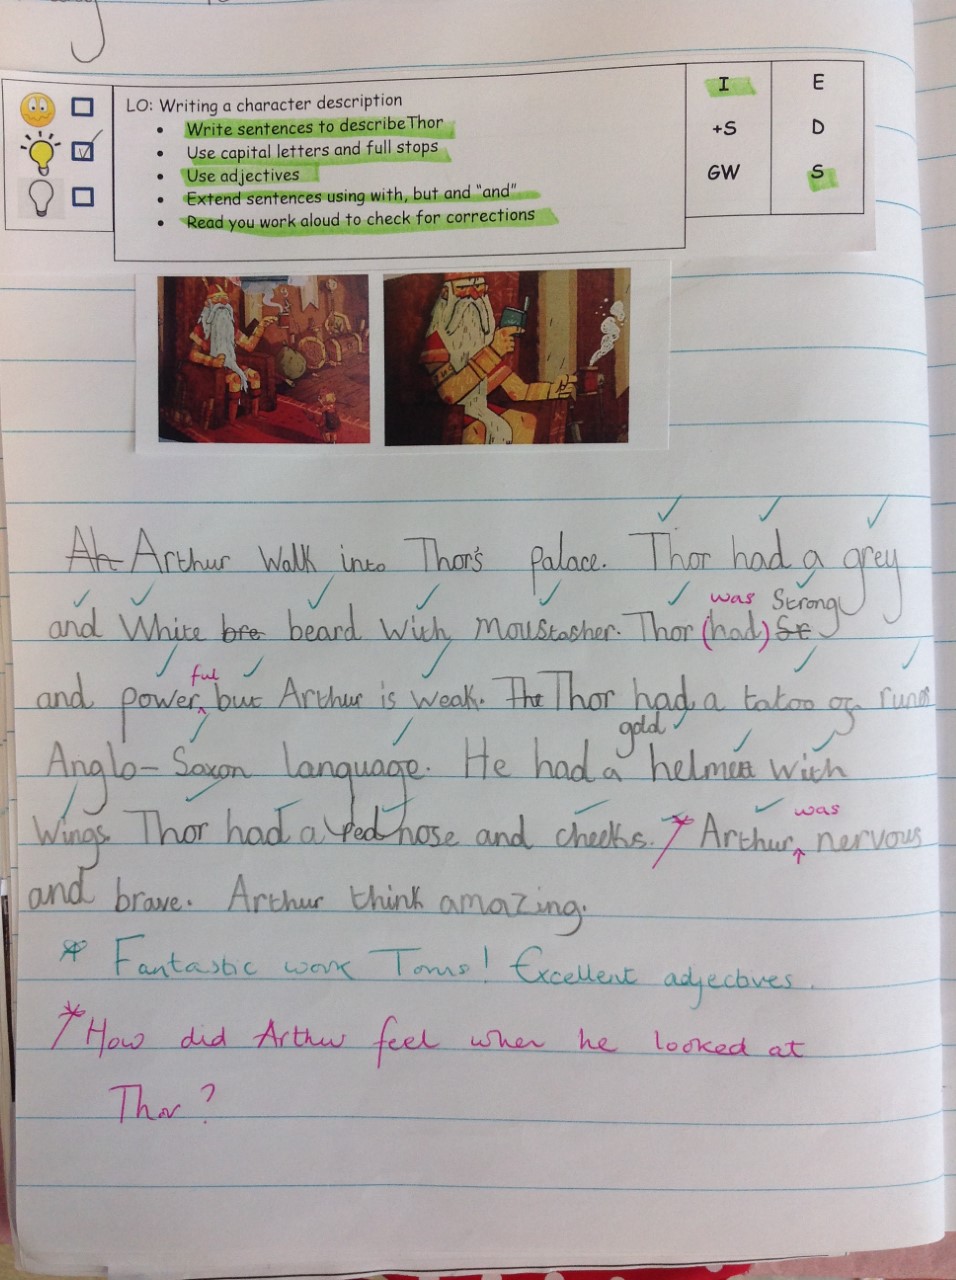 LO: Writing a character description
• Write sentences to describe Thor
• Use capital letters and full stops
• Use adjectives
• Extend sentences using with, but and “and”
• Read you work aloud to check for corrections
I E
+S D
GW S
Ah Arthur Walk into Thor's palace. Thor had a grey
was Strong
and White bre beard with moustasher. Thor (had) St
ful
and power but Arthur is weak. The Thor had a tatoo of runs
gold
Anglo-Saxon language. He had a helmett with
was
Wings. Thor had a red nose and cheeks. * Arthur nervous
and brave. Arthur think amazing.
* Fantastic work Toms! Excellent adjectives.
* How did Arthur feel when he looked at
Thor?